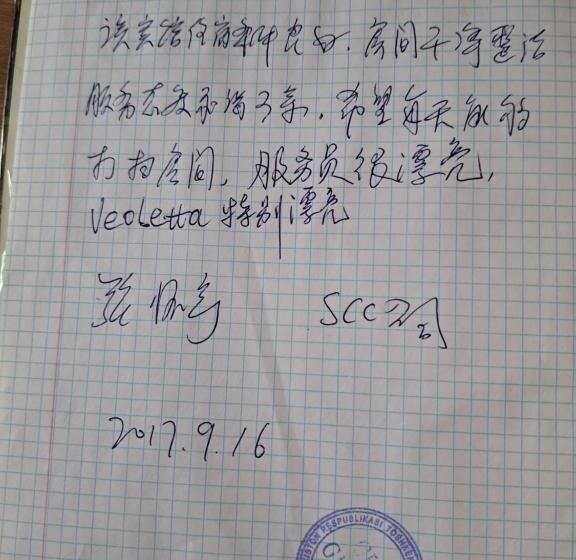 该宾馆住宿条件良好，房间干净整洁
服务态度没得了亲，希望每天能够
打扫房间，服务员很漂亮，
Veoletta 特别漂亮
张 SCC公司
2017.9.16
STON RESPUBLIKASI TOSHKEN